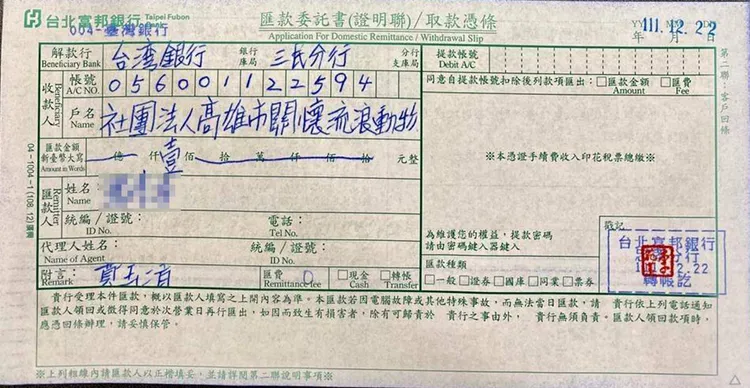 台北富邦銀行 Taipei Fubon
004-臺灣銀行
匯款委託書(證明聯)/取款憑條
Application For Domestic Remittance / Withdrawal Slip
111.12.22
年 月 日
解款行 台湾銀行 銀行 庫局 三民分行 分行 支庫局
Beneficiary Bank
收款人 Beneficiary
帳號 A/C NO. 056001122594
戶名 Name 社團法人高雄市關懷流浪動物
匯款金額 新臺幣大寫 億 仟 壹 佰 拾 萬 仟 佰 拾 元整
Amount in Words
匯款人 Remitter
姓名 Name
統編/證號: ID No. 電話: Tel No.
代理人姓名: Name of Agent 統編/證號: ID No.
附言: Remark 匯費 Remittance fee 0 □現金 Cash □轉帳 Transfer
提款帳號
Debit A/C
同意自提款帳號扣除後列款項匯出: □匯款金額 Amount □匯費 Fee
※本憑證手續費收入印花稅票總繳※
為維護您的權益,提款密碼
請由密碼鍵入器鍵入
匯款種類
□一般 □證券 □國庫 □同業 □票券
戳記
台北富邦銀行
12.22
轉帳訖
第二聯:客戶回條
04-1004-1(108.12)
貴行受理本件匯款,概以匯款人填寫之上開內容為準。本匯款若因電腦故障或其他特殊事故,而無法當日匯款,請 貴行依上列電話通知
匯款人領回或徵得同意於次營業日再行匯出,如因而致生有損害者,除有可歸責於 貴行之事由外, 貴行無須負責。匯款人領回款項時,
應憑回條辦理,請妥慎保管。
※上列粗線內請匯款人以正楷填妥,並請詳閱第二聯說明事項※